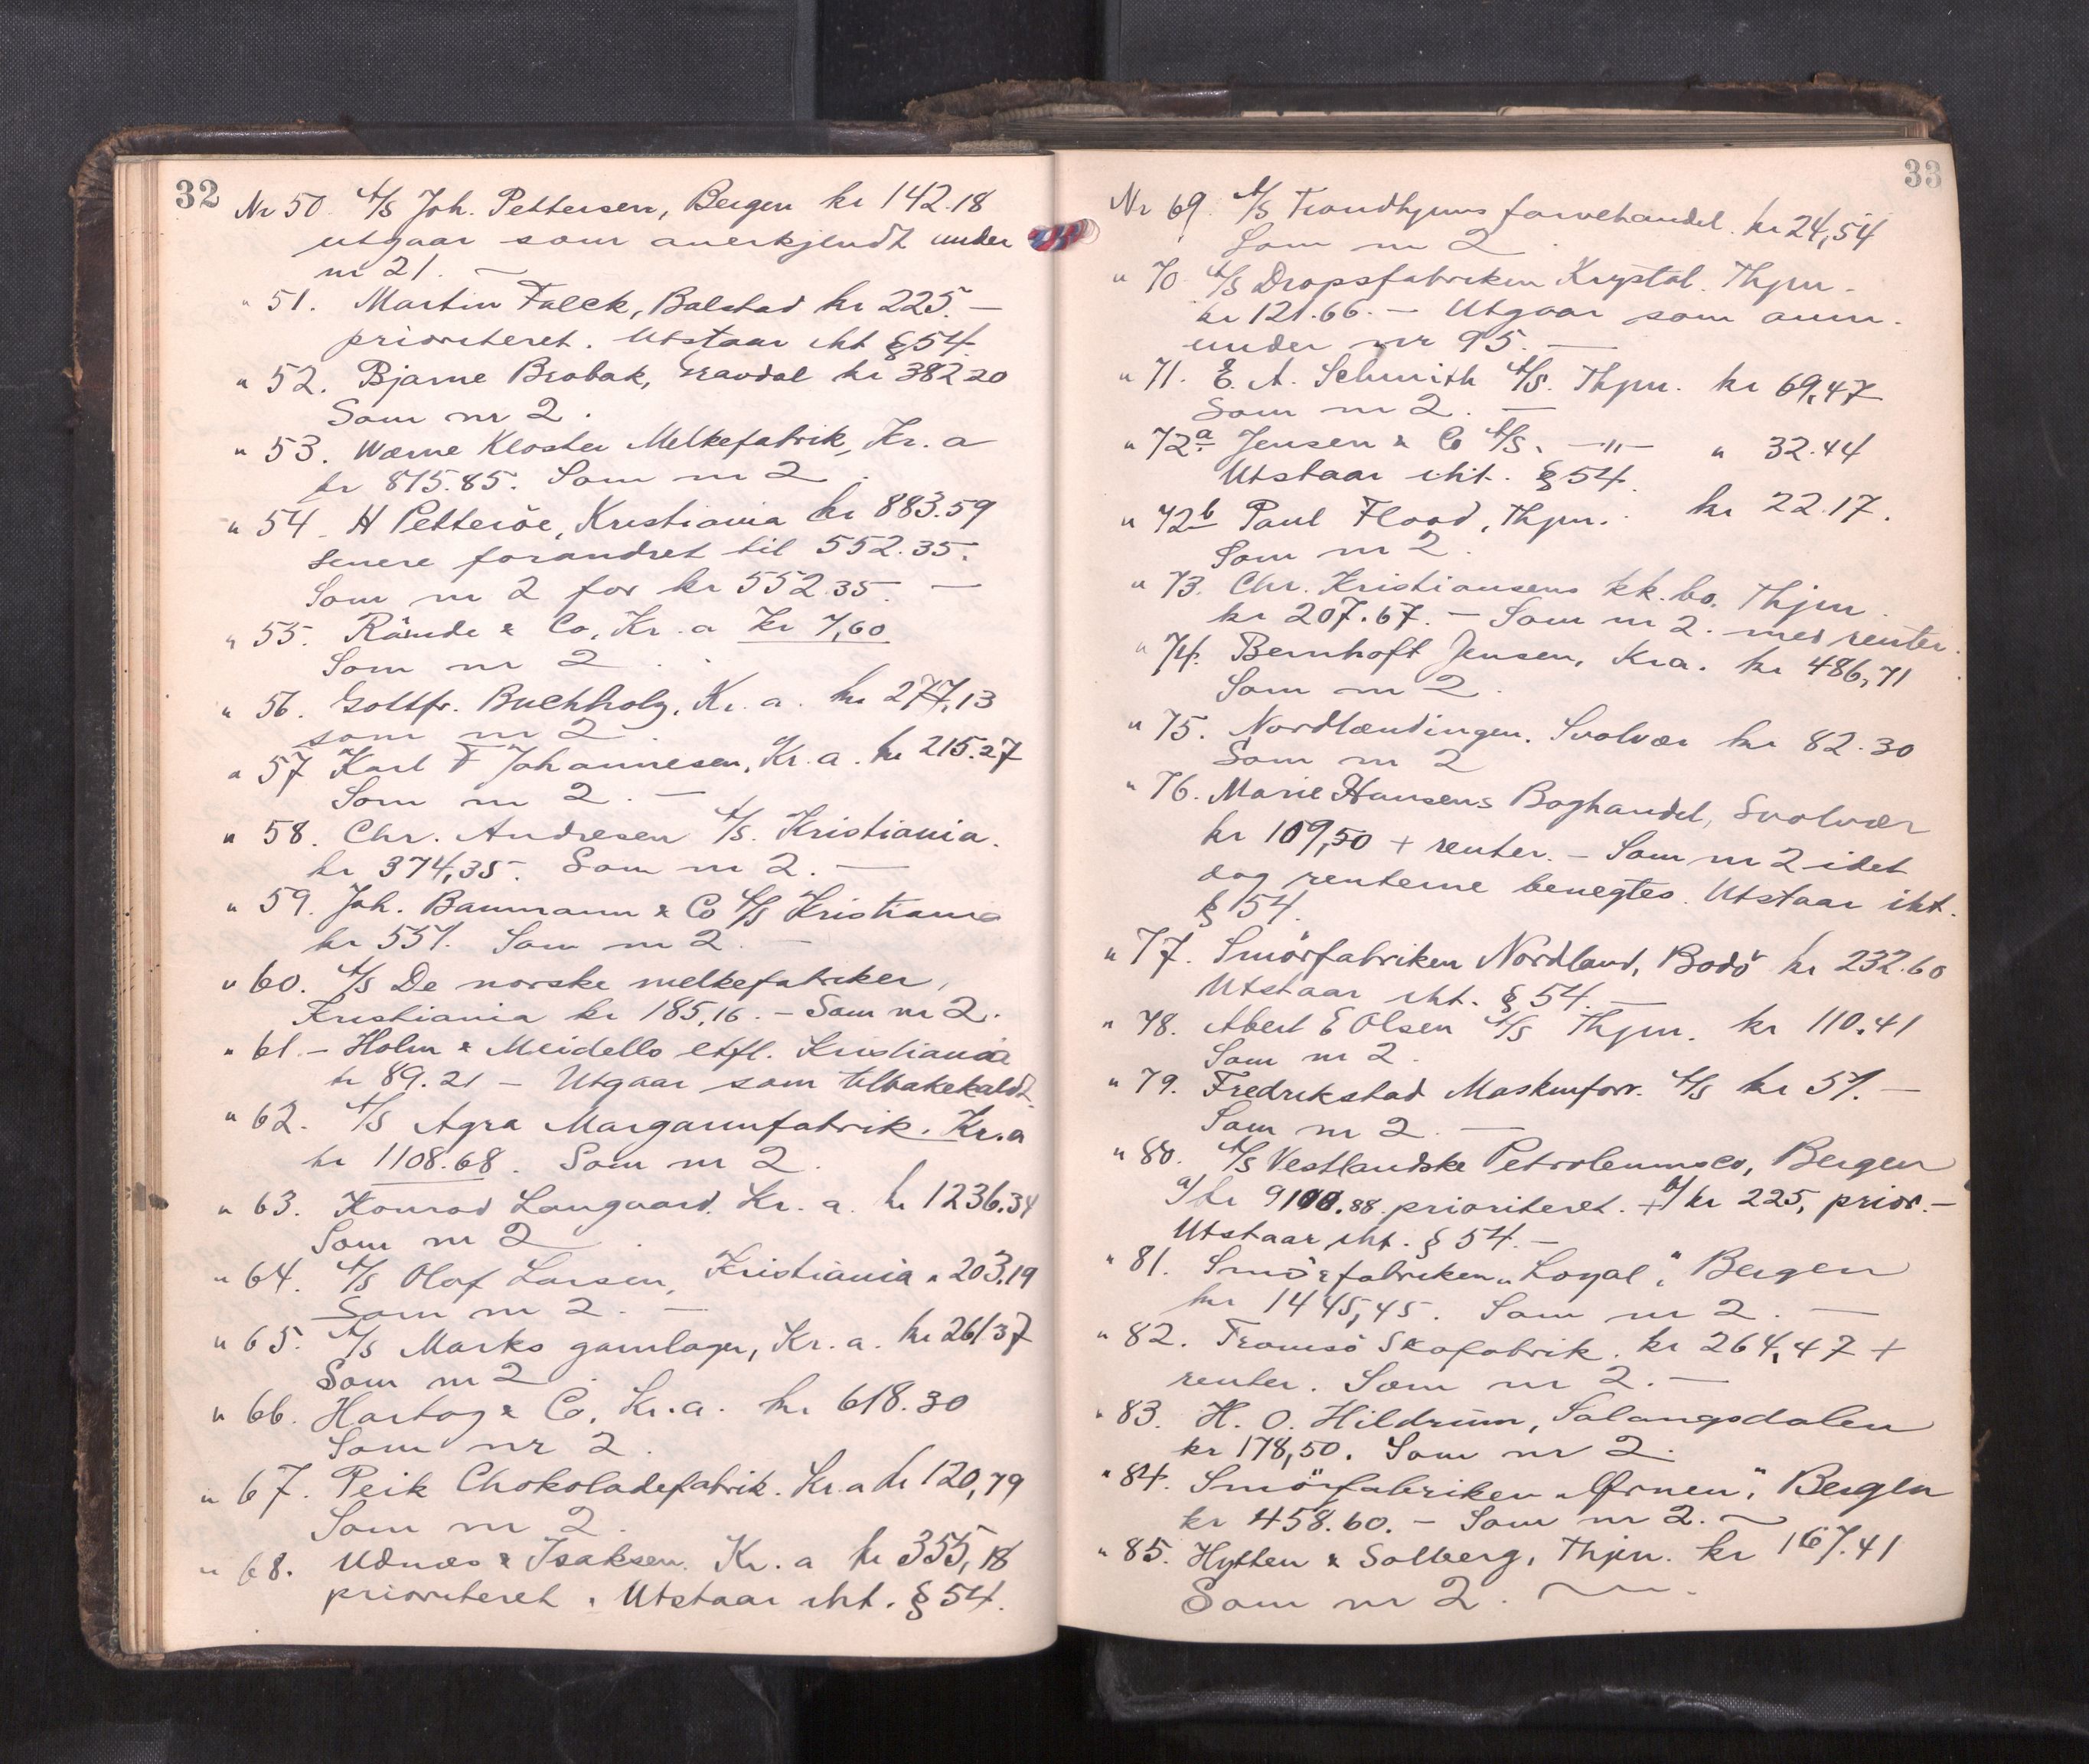 32
Nr 50. A/S Joh. Pettersen, Bergen kr 142.18
utgaar som anerkjendt under
nr 21. —
" 51. Martin Falck, Balstad kr 225.—
prioriteret. Utstaar iht § 54.
" 52. Bjarne Brobak, Gravdal kr 382.20
Som nr 2.
" 53. Wærne Kloster Melkefabrik, Kr.a
kr 815.85. Som nr 2.
" 54. H Petteröe, Kristiania kr 883.59
senere forandret til 552.35.
Som nr 2 for kr 552.35. —
" 55. & Co, Kr.a kr 7,60
Som nr 2.
" 56. Gottfr. Buchholz, Kr.a. kr 277,13
som nr 2.
" 57 Karl F Johannesen, Kr.a. kr 215.27
Som nr 2. —
" 58. Chr. Andresen A/S. Kristiania.
kr 374,35. Som nr 2. —
" 59. Joh. Baumann & Co A/S Kristiania
kr 551. Som nr 2. —
" 60. A/S De norske melkefabriker,
Kristiania kr 185,16. – Som nr 2.
" 61. – Holm & Meidells eftfl. Kristiania
kr 89.21 – Utgaar som tilbakekaldt.
" 62. A/S Agra Margarinfabrik. Kr.a
kr 1108.68. Som nr 2.
" 63. Konrad Langaard. Kr.a. kr 1236.34
Som nr 2.
" 64. A/S Olaf Larsen, Kristiania " 203.19
Som nr 2. —
" 65. A/S Marks garnlager, Kr.a. kr 261.37
Som nr 2.
" 66. Hartog & Co, Kr.a. kr 618.30
Som nr 2.
" 67. Peik Chokoladefabrik. Kr.a kr 120,79
Som nr 2.
" 68. Udnæs & Isaksen. Kr.a kr 355,18
prioriteret. Utstaar iht. § 54.
33
Nr 69. A/S Trondhjems farvehandel. kr 24,54
Som nr 2.
" 70 A/S Dropsfabriken Krystal. Thjem.
kr 121.66. – Utgaar som anm.
under nr 95. —
" 71. E. A. Schmith A/S. Thjem. kr 69,47
Som nr 2. —
" 72a Jensen & Co A/S. —"— " 32.44
Utstaar iht. § 54.
" 72b Paul Flood, Thjem. kr 22.17.
Som nr 2.
" 73. Chr. Kristiansens kk.bo. Thjem.
kr 207.67. – Som nr 2. med renter.
" 74. Bernhoft Jensen, Kra. kr 486,71
Som nr 2.
" 75. Nordlændingen. Svolvær kr 82.30
Som nr 2
" 76. Marie Hansens Boghandel, Svolvær
kr 109,50 + renter. – Som nr 2 idet
dog renterne benegtes. Utstaar iht.
§ 54.
" 77. Smörfabriken Nordland, Bodö kr 232.60
Utstaar iht. § 54. —
" 78. Abert E Olsen A/S Thjem. kr 110.41
Som nr 2.
" 79. Fredrikstad Maskinforr. A/S kr 51. —
Som nr 2. —
" 80. A/S Vestlandske Petroleumsco, Bergen
a/ kr 9100.88 prioriteret. + b/ kr 225, prior. –
Utstaar iht. § 54. —
" 81. Smörfabriken „Loyal", Bergen
kr 1445,45. Som nr 2. —
" 82. Tromsö Skofabrik. kr 264,47 +
renter. Som nr 2. —
" 83. H. O. Hildrum, Salangsdalen
kr 178,50. Som nr 2.
" 84. Smörfabriken „Örnen", Bergen
kr 458.60. – Som nr 2. —
" 85. Hytten & Solberg, Thjem. kr 167.41
Som nr 2. —